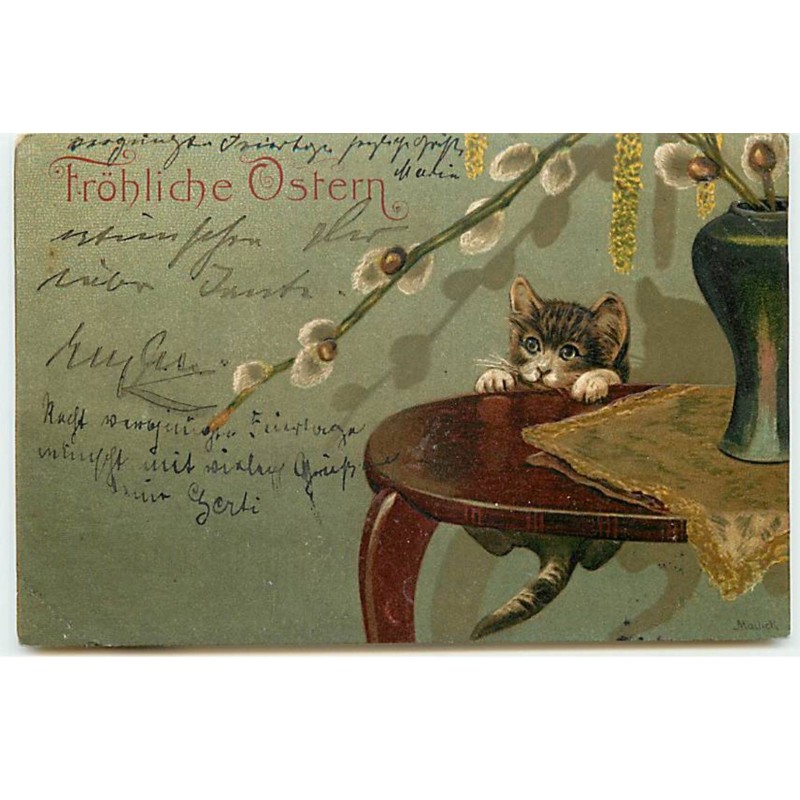 vergnügte Feiertage herzliche Grüße
Marie
Fröhliche Ostern
wünschen der
liebe Tante.
Recht vergnügte Feiertage
wünscht mit vielen Grüße
Deine Gerti
Mailick